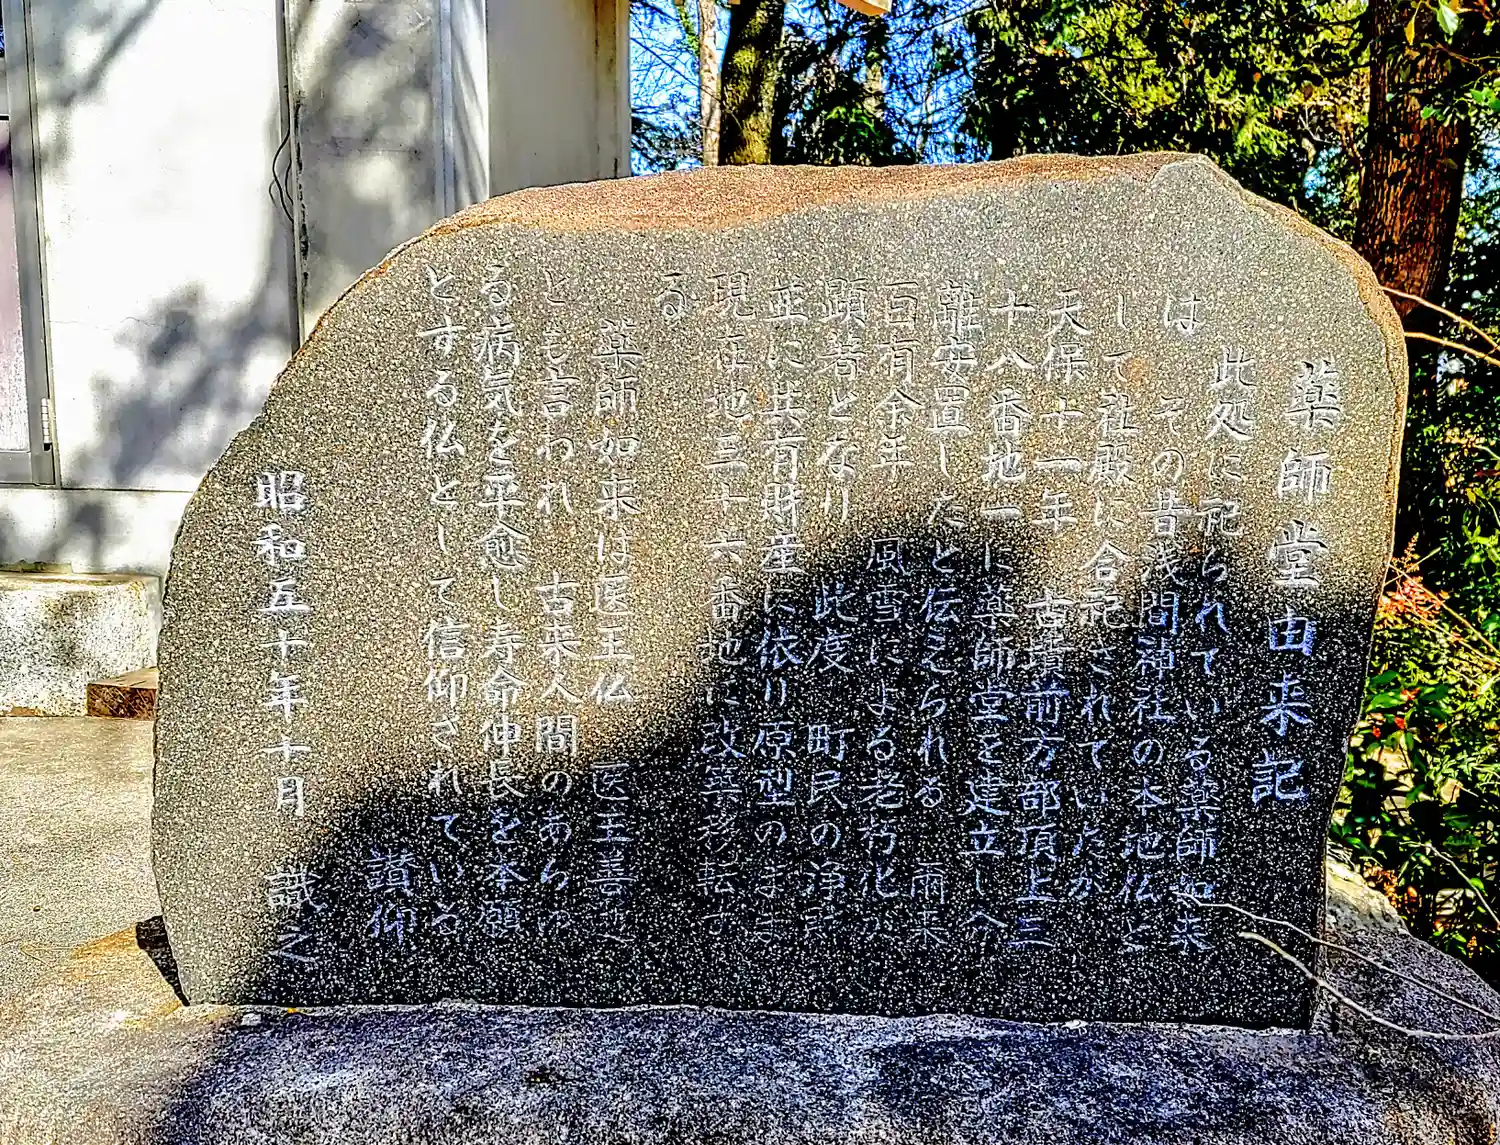 薬師堂由来記
此処に祀られている薬師如来
は その昔浅間神社の本地仏と
して社殿に合祀されていたが
天保十一年 古墳前方部頂上三
十八番地一に薬師堂を建立し分
離安置したと伝えられる 雨来
百有余年 風雪による老朽化が
顕著となり 此度 町民の浄財
並に共有財産に依り原型のまま
現在地三十六番地に改築移転す
る
薬師如来は医王仏 医王善逝
とも言われ 古来人間のあらゆ
る病気を平愈し寿命伸長を本願
とする仏として信仰されている
讃仰
昭和五十年十月 識之